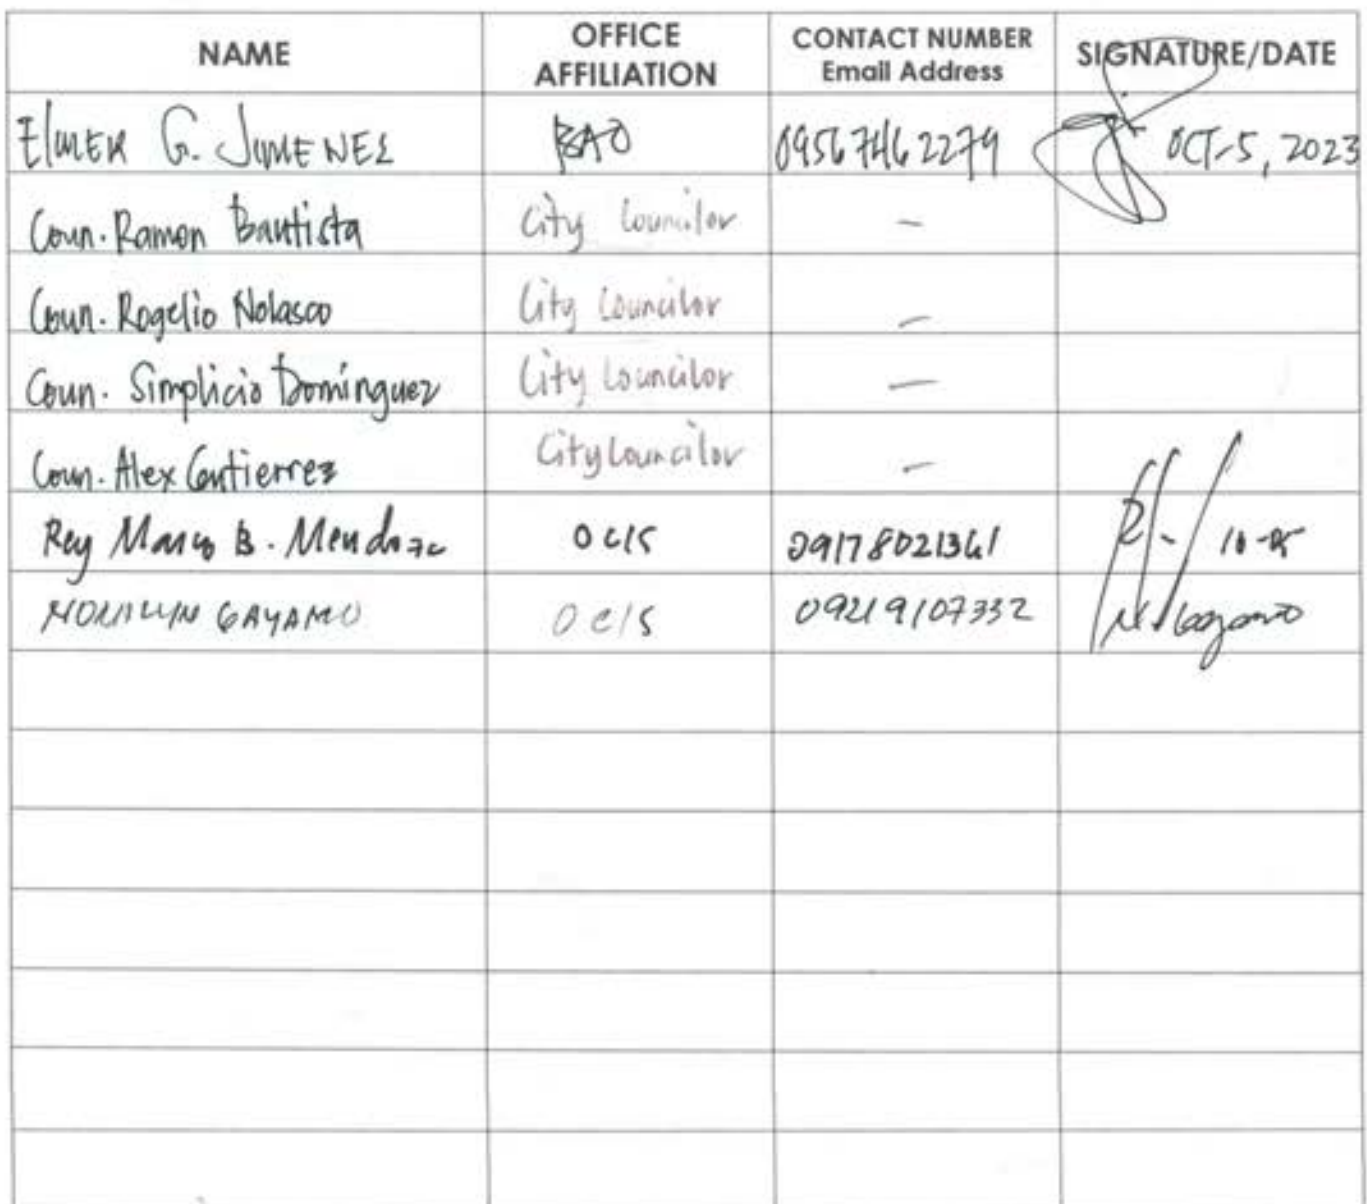 NAME OFFICE AFFILIATION CONTACT NUMBER Email Address SIGNATURE/DATE
Elmer G. JIMENEZ BAO 09567462279 OCT-5, 2023
Coun. Ramon Bautista City Councilor -
Coun. Rogelio Nolasco City Councilor -
Coun. Simplicio Dominguez City Councilor -
Coun. Alex Gutierrez City Councilor -
Rey Marco B. Mendoza OCIS 09178021361 10-05
GAYAMO OCIS 09219107332